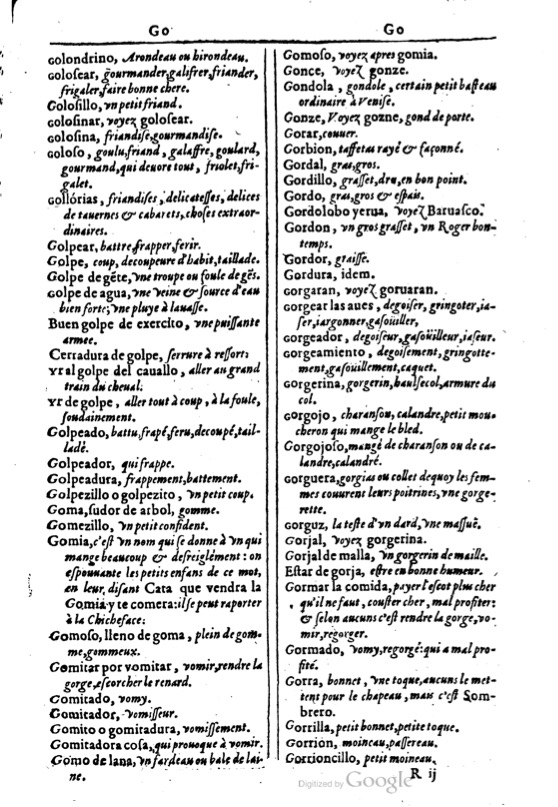 Go
Golondrino, Arondeau ou hirondeau.
Golosear, gourmander, galifrer, friander,
frigaler, faire bonne chere.
Golosillo, vn petit friand.
Golosinar, voyez golosear.
Golosina, friandise, gourmandise.
Goloso, goulu, friand, galaffre, goulard,
gourmand, qui deuore tout, friolet, fri-
galet.
Gollórias, friandises, delicatesses, delices
de tauernes & cabarets, choses extraor-
dinaires.
Golpear, battre, frapper, ferir.
Golpe, coup, decoupeure d'habit, taillade.
Golpe de gēte, vne troupe ou foule de gēs.
Golpe de agua, vne veine & source d'eau
bien forte; vne pluye à lauasse.
Buen golpe de exercito, vne puissante
armee.
Cerradura de golpe, serrure à ressort:
Yr al golpe del cauallo, aller au grand
train du cheual:
Yr de golpe, aller tout à coup, à la foule,
soudainement.
Golpeado, battu, frapé, feru, decoupé, tail-
ladé.
Golpeador, qui frappe.
Golpeadura, frappement, battement.
Golpezillo o golpezito, vn petit coup.
Goma, sudor de arbol, gomme.
Gomezillo, vn petit confident.
Gomia, c'est vn nom qui se donne à vn qui
mange beaucoup & desreiglément: on
espouuante les petits enfans de ce mot,
en leur disant Cata que vendra la
Gomia y te comera: il se peut raporter
à la Chicheface:
Gomoso, lleno de goma, plein de gom-
me, gommeux.
Gomitar por vomitar, vomir, rendre la
gorge, escorcher le renard.
Gomitado, vomy.
Gomitador, vomisseur.
Gomito o gomitadura, vomissement.
Gomitadora cosa, qui prouoque à vomir.
Gomo de lana, vn fardeau ou bale de lai-
ne.
Go
Gomoso, voyez apres gomia.
Gonce, voyez gonze.
Gondola, gondole, certain petit basteau
ordinaire à Venise.
Gonze, Voyez gozne, gond de porte.
Gorar, couuer.
Gorbion, taffetas rayé & façonné.
Gordal, gras, gros.
Gordillo, grasset, dru, en bon point.
Gordo, gras, gros & espais.
Gordolobo yerua, voyez Baruasco.
Gordon, vn gros grasset, vn Roger bon-
temps.
Gordor, graisse.
Gordura, idem.
Gorgaran, voyez goruaran.
Gorgear las aues, degoiser, gringoter, ia-
ser, iargonner, gasoüiller,
Gorgeador, degoiseur, gasoüilleur, iaseur.
Gorgeamiento, degoisement, gringotte-
ment, gasouillement, caquet.
Gorgerina, gorgerin, haulsecol, armure du
col.
Gorgojo, charanson, calandre, petit mou-
cheron qui mange le bled.
Gorgojoso, mangé de charanson ou de ca-
landre, calandré.
Gorguera, gorgias ou collet dequoy les fem-
mes couurent leurs poitrines, vne gorge-
rette.
Gorguz, la teste d'vn dard, vne massuë.
Gorjal, voyez gorgerina.
Gorjal de malla, vn gorgerin de maille.
Estar de gorja, estre en bonne humeur.
Gormar la comida, payer l'escot plus cher
qu'il ne faut, couster cher, mal profiter:
& selon aucuns c'est rendre la gorge, vo-
mir, regorger.
Gormado, vomy, regorgé: qui a mal pro-
fité.
Gorra, bonnet, vne toque, aucuns le met-
tent pour le chapeau, mais c'est Som-
brero.
Gorrilla, petit bonnet, petite toque.
Gorrion, moineau, passereau.
Gorrioncillo, petit moineau.
R ij
Digitized by Google